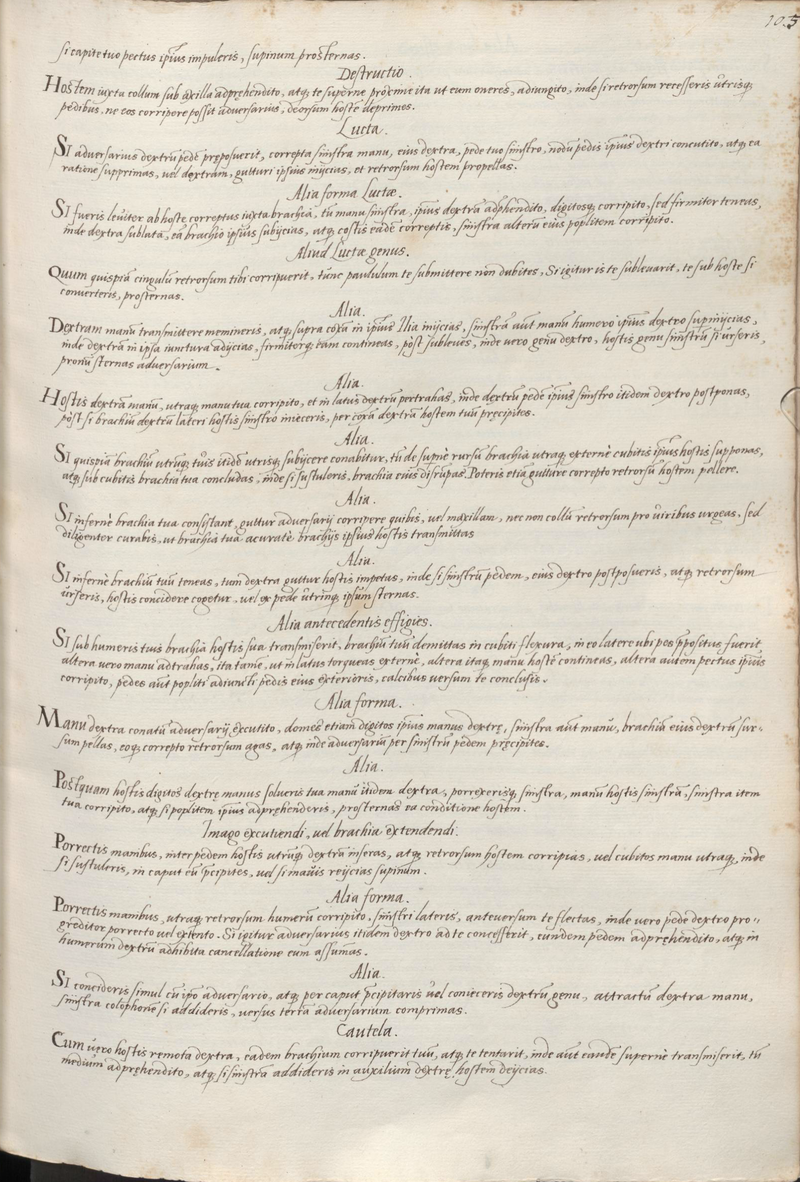 105
si capite tuo pectus ipsius impuleris, supinum prosternas.
Destructio.
Hostem iuxta collum sub axilla adprehendito, atq; te superne proxime ita ut eum oneres, adiungito, inde si retrorsum recesseris utrisq;
pedibus, ne eos corripere possit adversarius, deorsum hostē deprimes.
Lucta.
SI adversarius dextrū pedē pręposuerit, correpta sinistra manu, eius dextra, pede tuo sinistro, nodū pedis ipsius dextri concutito, atq; ea
ratione supprimas, vel dextram, gutturi ipsius inijcias, et retrorsum hostem propellas.
Alia forma Luctæ.
SI fueris leviter ab hoste correptus iuxta brachia, tū manu sinistra, ipsius dextrā adphendito, digitosq; corripito, sed firmiter teneas,
inde dextra sublata, eā brachio ipsius subijcias, atq; costis eadē correptis, sinistra alterū eius poplitem corripito.
Aliud Luctæ genus.
Quum quispiā cingulū retrorsum tibi corripuerit, tunc paululum te submittere non dubites, Si igitur is te sublevarit, te sub hoste si
converteris, prosternas.
Alia.
Dextram manū transmittere memineris, atq; supra coxā in ipsius Ilia inijcias, sinistrā aūt manū humero ipsius dextro supinijcias,
inde dextrā in ipsa iunctura adijcias, firmiterq; eam contineas, post subleves, inde vero genu dextro, hostis genu sinistrū si urseris,
pronū sternas adversarium.
Alia.
Hostis dextrā manū, utraq; manu tua corripito, et in latus dextrū protrahas, inde dextrū pedē ipsius sinistro itidem dextro postponas,
post si brachiū dextrū lateri hostis sinistro inieceris, per coxā dextrā hostem tuū pręcipites.
Alia.
SI quispiā brachiū utrūq; tuis itidē utrisq; subijcere conabitur, tū de supnè rursū brachia utraq; externè cubitis ipsius hostis supponas,
atq; sub cubitis brachia tua concludas, inde si sustuleris, brachia eius disrūpas. Poteris etiā gutture correpto retrorsū hostem pellere.
Alia.
SI infernè brachia tua consistant, guttur adversarij corripere quibis, vel maxillam, nec non collū retrorsum pro viribus urgeas. sed
diligenter curabis, ut brachia tua acuratè brachijs ipsius hostis transmittas
Alia.
SI infernè brachiū tuū teneas, tum dextra guttur hostis impetas, inde si sinistrū pedem, eius dextro postposueris, atq; retrorsum
urseris, hostis concidere cogetur, vel ex pede utrinq; ipsum sternas.
Alia antecedentis effigies.
SI sub humeris tuis brachia hostis sua transmiserit, brachiū tuū demittas in cubiti flexura, in eo latere ubi pes ppositus fuerit
altera vero manu adtrahas, ita tamē, ut in latus torqueas externè, altera itaq; manu hostē contineas, altera autem pectus ipsius
corripito, pedes aūt popliti adiuncti pedis eius exterioris, calcibus versum te conclusis.
Alia forma.
Manu dextra conatū adversarij excutito, domes etiam digitos ipsius manus dextrę, sinistra aūt manu, brachiū eius dextrū sur-
sum pellas, eoq; correpto retrorsum agas, atq; inde adversariū per sinistrū pedem pręcipites.
Alia.
Postquam hostis digitos dextrę manus solveris tua manu itidem dextra, porrexerisq; sinistra, manū hostis sinistrā, sinistra item
tua corripito, atq; si poplitem ipsius adprehenderis, prosternas ea conditione hostem.
Imago excutiendi, vel brachia extendendi.
Porrectis manibus, inter pedem hostis utrūq; dextrū inseras, atq; retrorsum hostem corripias, vel cubitos manu utraq; inde
si sustuleris, in caput eū pcipites, vel si mavis reijcias supinum.
Alia forma.
Porrectis manibus, utraq; retrorsum humerū corripito, sinistri lateris, anteversum te flectas, inde vero pede dextro pro-
greditor porrecto vel extento. Si igitur adversarius itidem dextro ad te concesserit, eundem pedem adprehendito, atq; in
humerum dextrū adhibita cancellatione eum assumas.
Alia.
SI concideris simul cū ipso adversario, atq; per caput pcipitaris vel conieceris dextrū genu, attractū dextra manu,
sinistra colophone si addideris, versus terrā adversarium comprimas.
Cautela.
Cum vero hostis remota dextra, eadem brachium corripuerit tuū, atq; te tentarit, inde aūt eandē supernè transmiserit, tū
medium adprehendito, atq; si sinistrā addideris in auxilium dextrę, hostem deijcias.